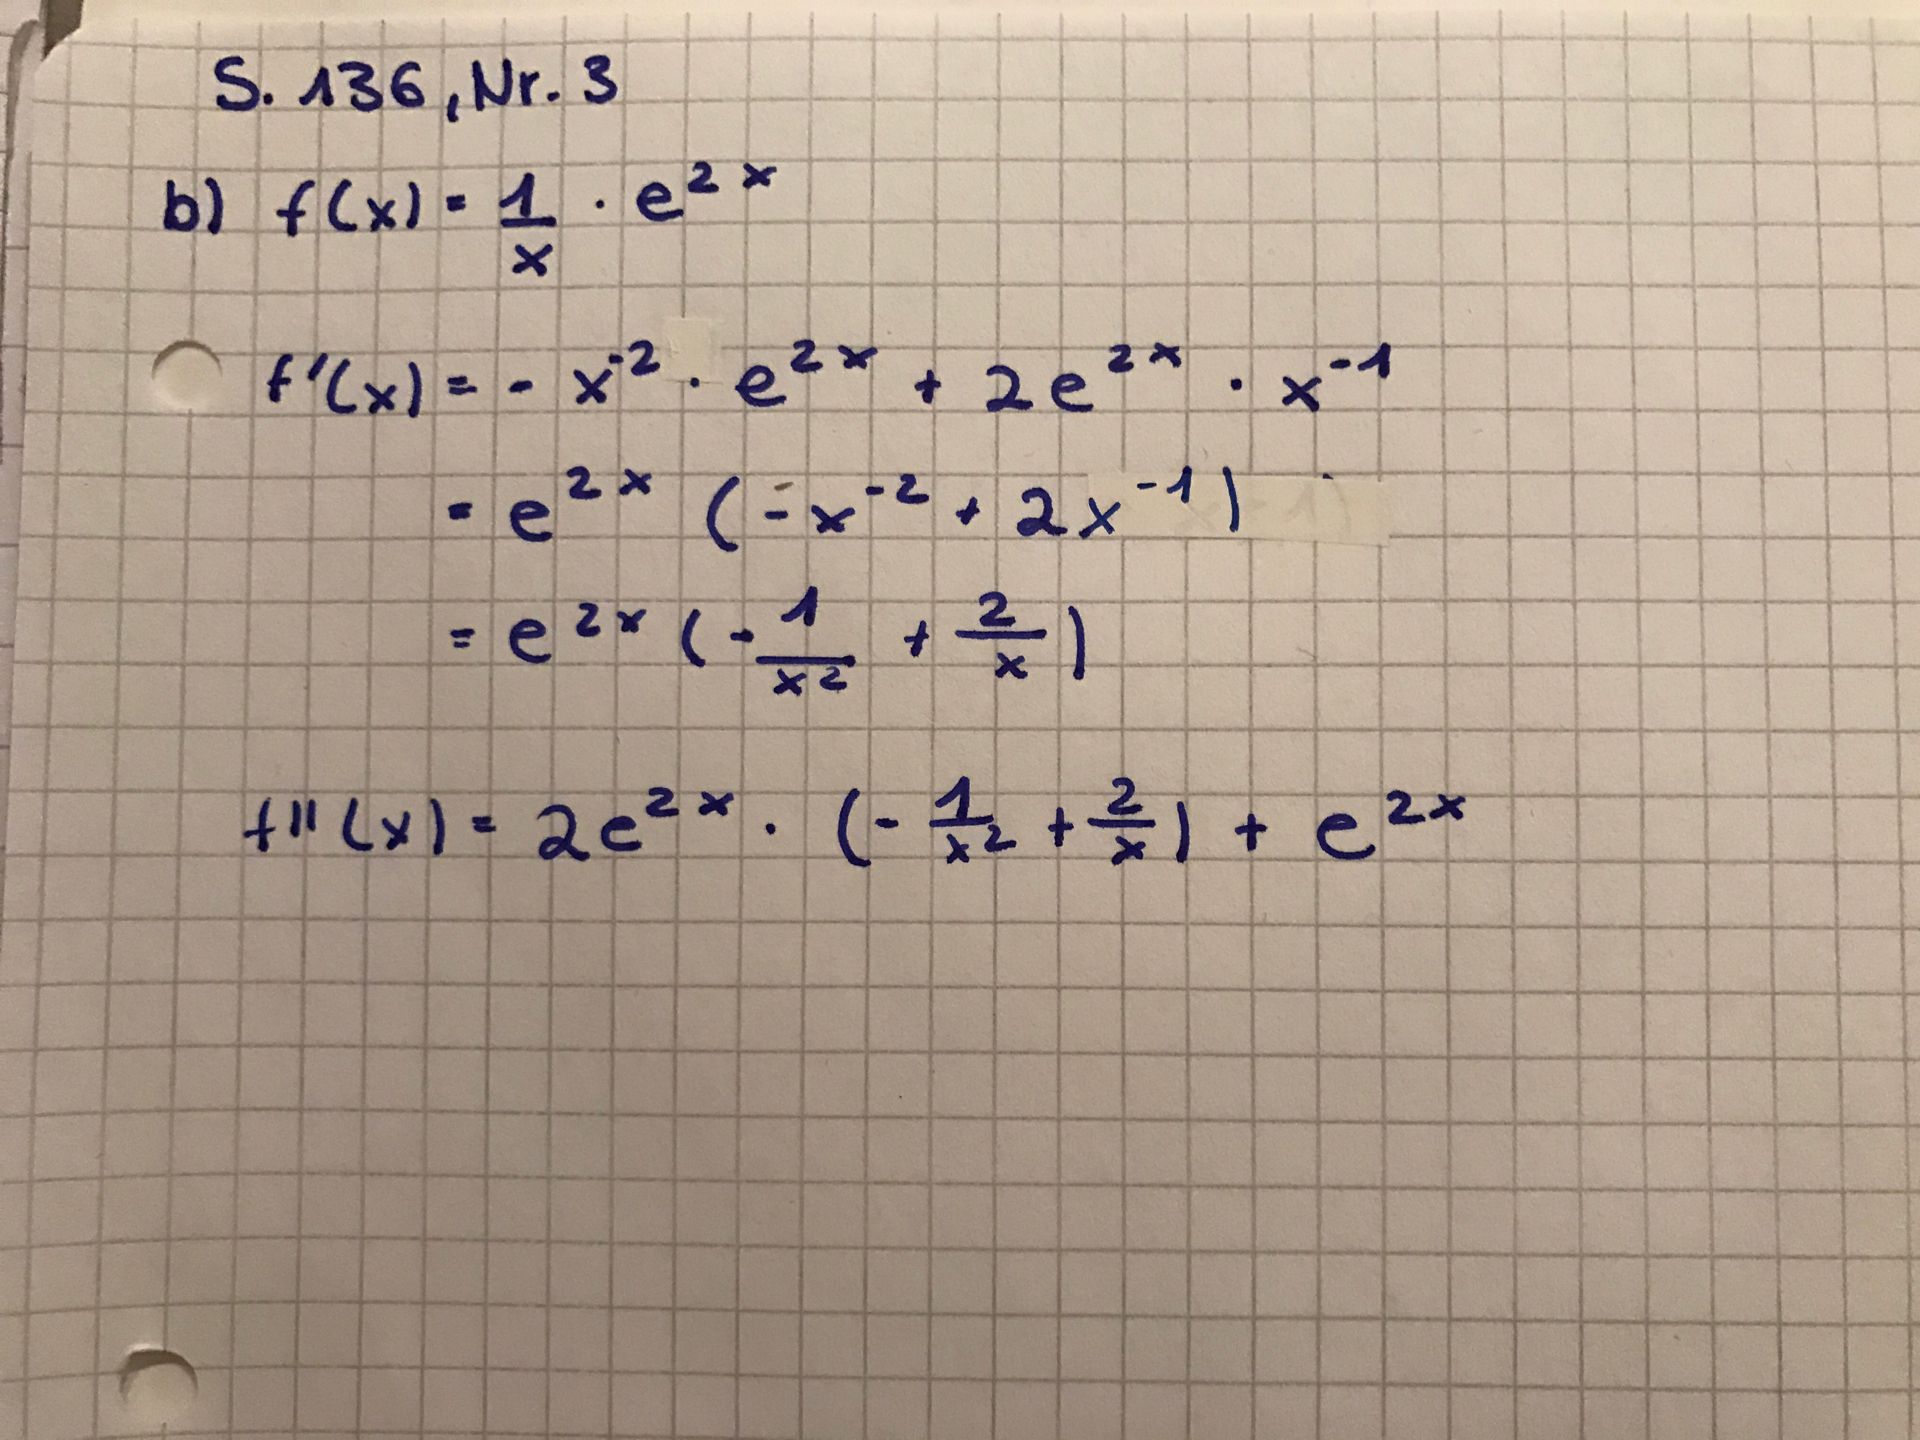 S. 136, Nr. 3
b) f(x) = 1/x · e^2x
f'(x) = - x^-2 · e^2x + 2e^2x · x^-1
= e^2x (-x^-2 + 2x^-1)
= e^2x (-1/x^2 + 2/x)
f''(x) = 2e^2x · (-1/x^2 + 2/x) + e^2x